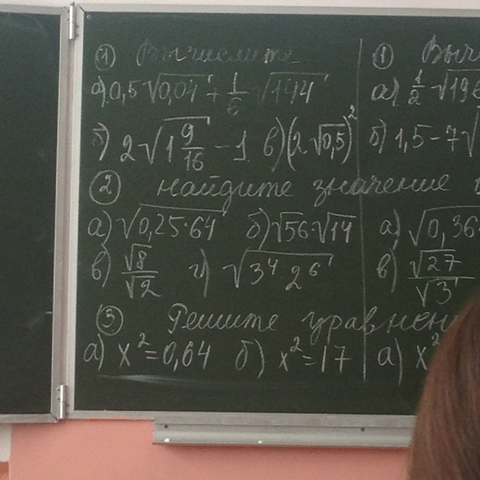 ① Вычислите
а) 0,5√0,04 + 1/6 √144
б) 2√1 9/16 - 1 в) (2√0,5)²
② найдите значение
а) √0,25·64 б) √56·√14
в) √8/√2 г) √3⁴·2⁶
③ Решите уравнен
а) x²=0,64 б) x²=17
① Выч
а) 1/2 √196
б) 1,5-7√
а) √0,36
в) √27/√3
а) x²